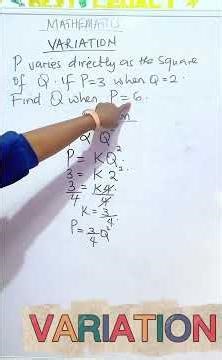 MATHEMATICS
VARIATION
P varies directly as the square
of Q. If P=3 when Q=2.
Find Q when P=6.
P = KQ².
3 = K2².
3/4 = K4/4
K = 3/4
P = 3/4 Q²
VARIATION